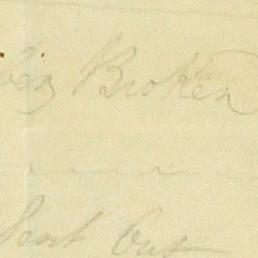 Broken
Sent Out